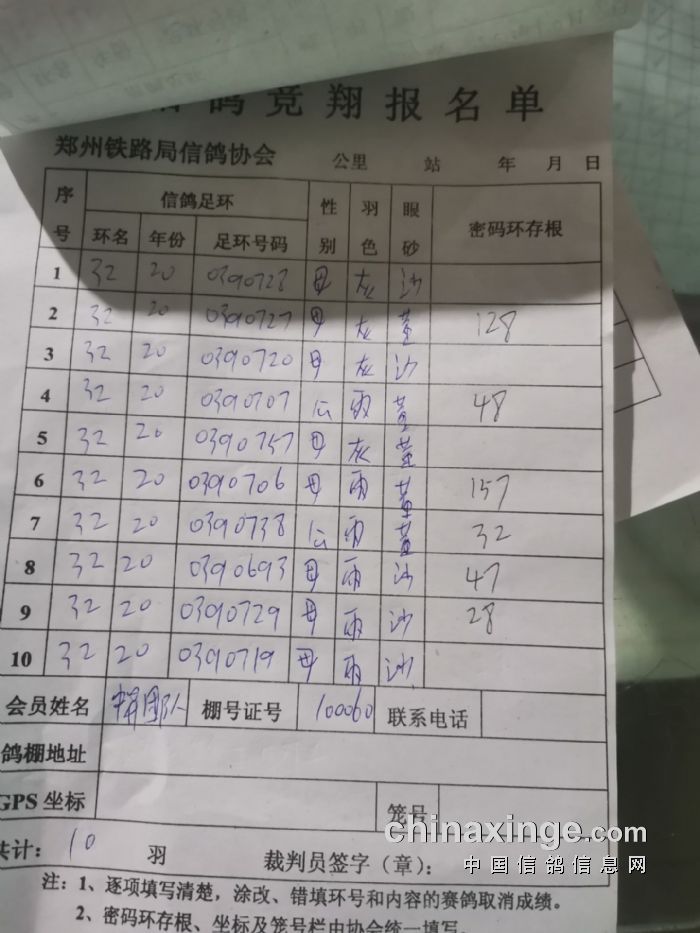 鸽竞翔报名单
郑州铁路局信鸽协会 公里 站 年 月 日
序号 信鸽足环 性别 羽色 眼砂 密码环存根
环名 年份 足环号码
1 32 20 0390728 母 灰 沙
2 32 20 0390727 母 灰 黄 128
3 32 20 0390720 母 灰 沙
4 32 20 0390707 公 雨 黄 48
5 32 20 0390757 母 灰 黄
6 32 20 0390706 母 雨 黄 157
7 32 20 0390738 公 雨 黄 32
8 32 20 0390693 母 雨 沙 47
9 32 20 0390729 母 雨 沙 28
10 32 20 0390719 母 雨 沙
会员姓名 团队 棚号证号 100060 联系电话
鸽棚地址
GPS 坐标 笼号
共计: 10 羽 裁判员签字(章):
chinaxinge.com
中国信鸽信息网
注:1、逐项填写清楚,涂改、错填环号和内容的赛鸽取消成绩。
2、密码环存根、坐标及笼号栏由协会统一填写。